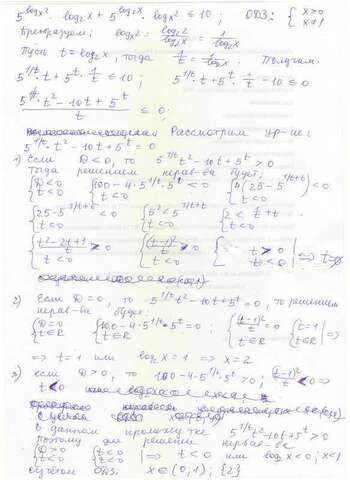 5^{log_x 2} · log_2 x + 5^{log_2 x} · log_x 2 ≤ 10 ; ОДЗ: { x>0 x≠1
Преобразуем: log_x 2 = log_2 2 / log_2 x = 1 / log_2 x
Пусть t = log_2 x, тогда 1/t = log_x 2. Получаем:
5^{1/t}·t + 5^t · 1/t ≤ 10 ; 5^{1/t}·t + 5^t · 1/t − 10 ≤ 0
(5^{1/t}·t² − 10t + 5^t) / t ≤ 0 ;
Рассмотрим ур-ие:
5^{1/t}·t² − 10t + 5^t = 0
1) Если D<0, то 5^{1/t}t² − 10t + 5^t > 0
тогда решением нерав-ва будет:
{ D<0 t<0 { 100−4·5^{1/t}·5^t < 0 t<0 { 4(25−5^{1/t+t}) < 0 t<0
{ 25−5^{1/t+t} < 0 t<0 { 5² < 5^{1/t+t} t<0 { 2 < 1/t + t t<0
{ (t²−2t+1)/t > 0 t<0 { (t−1)²/t > 0 t<0 { t>0 t<0 ⇒
2) Если D=0, то 5^{1/t}t² −10t+5^t=0, то решением
нерав-ва будет:
{ D=0 t∈R { 100−4·5^{1/t}·5^t=0 t∈R ; { (t−1)²/t = 0 t∈R { t=1 t∈R ⇒
⇒ t=1 или log_2 x = 1 ⇒ x=2
3) если D>0, то 100−4·5^{1/t}·5^t>0 ; (t−1)²/t < 0 ⇒
t<0
в данном промежутке 5^{1/t}t²−10t+5^t>0
поэтому для решения нерав-ва
{ D>0 t<0 { t<0 t<0 ⇒ t<0 или log_2 x<0 ; x<1
с учётом ОДЗ: x∈(0,1); {2}